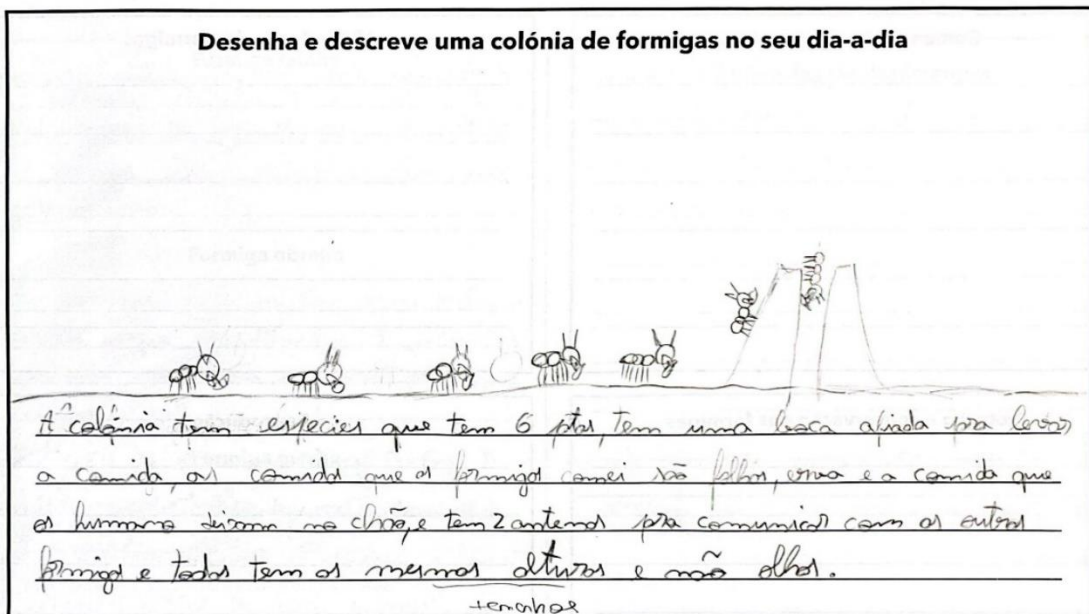 Desenha e descreve uma colónia de formigas no seu dia-a-dia
A colónia tem especies que tem 6 ptas, tem uma boca afiada pra levar
a comida, as comidas que as formigas comei são folhas, erva e a comida que
os humano deixam no chão, e tem 2 antenas pra comunicar com as outras
formigas e todas tem as mesmas alturas e não olhos.
tamanhos